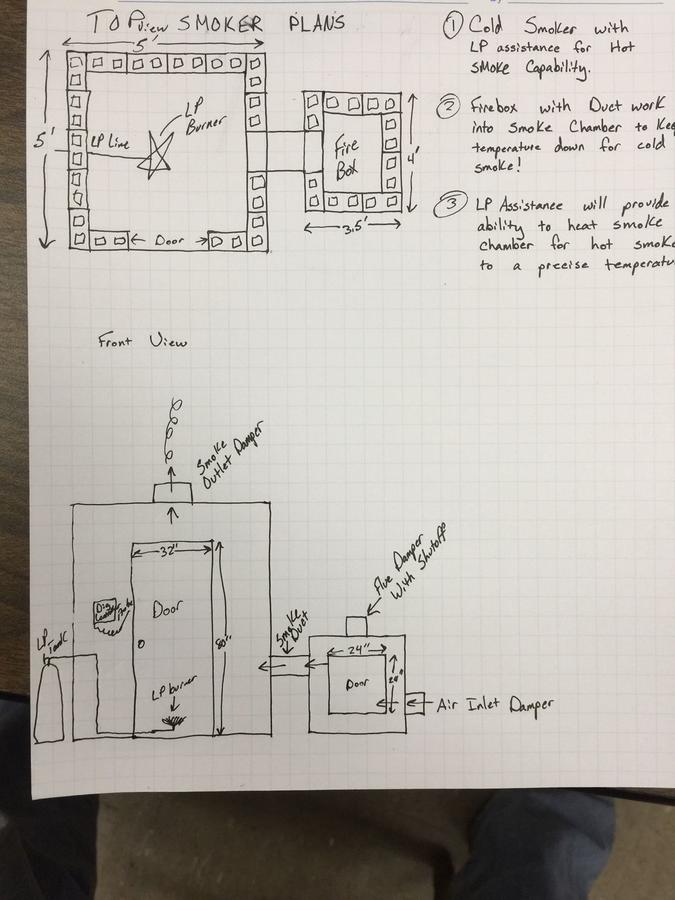 TOP view SMOKER PLANS
5'
5'
LP
Burner
LP Line
Fire
Box
4'
3.5'
Door
① Cold Smoker with
LP assistance for Hot
SMoke Capability.
② Firebox with Duct work
into Smoke Chamber to Kee
temperature down for cold
smoke!
③ LP Assistance will provide
ability to heat smoke
chamber for hot smoke
to a precise temperatu
Front View
Smoke
Outlet Damper
32"
Door
80"
LP
Tank
LP burner
Smoke
Duct
Flue Damper
With Shutoff
24"
Door
24"
Air Inlet Damper